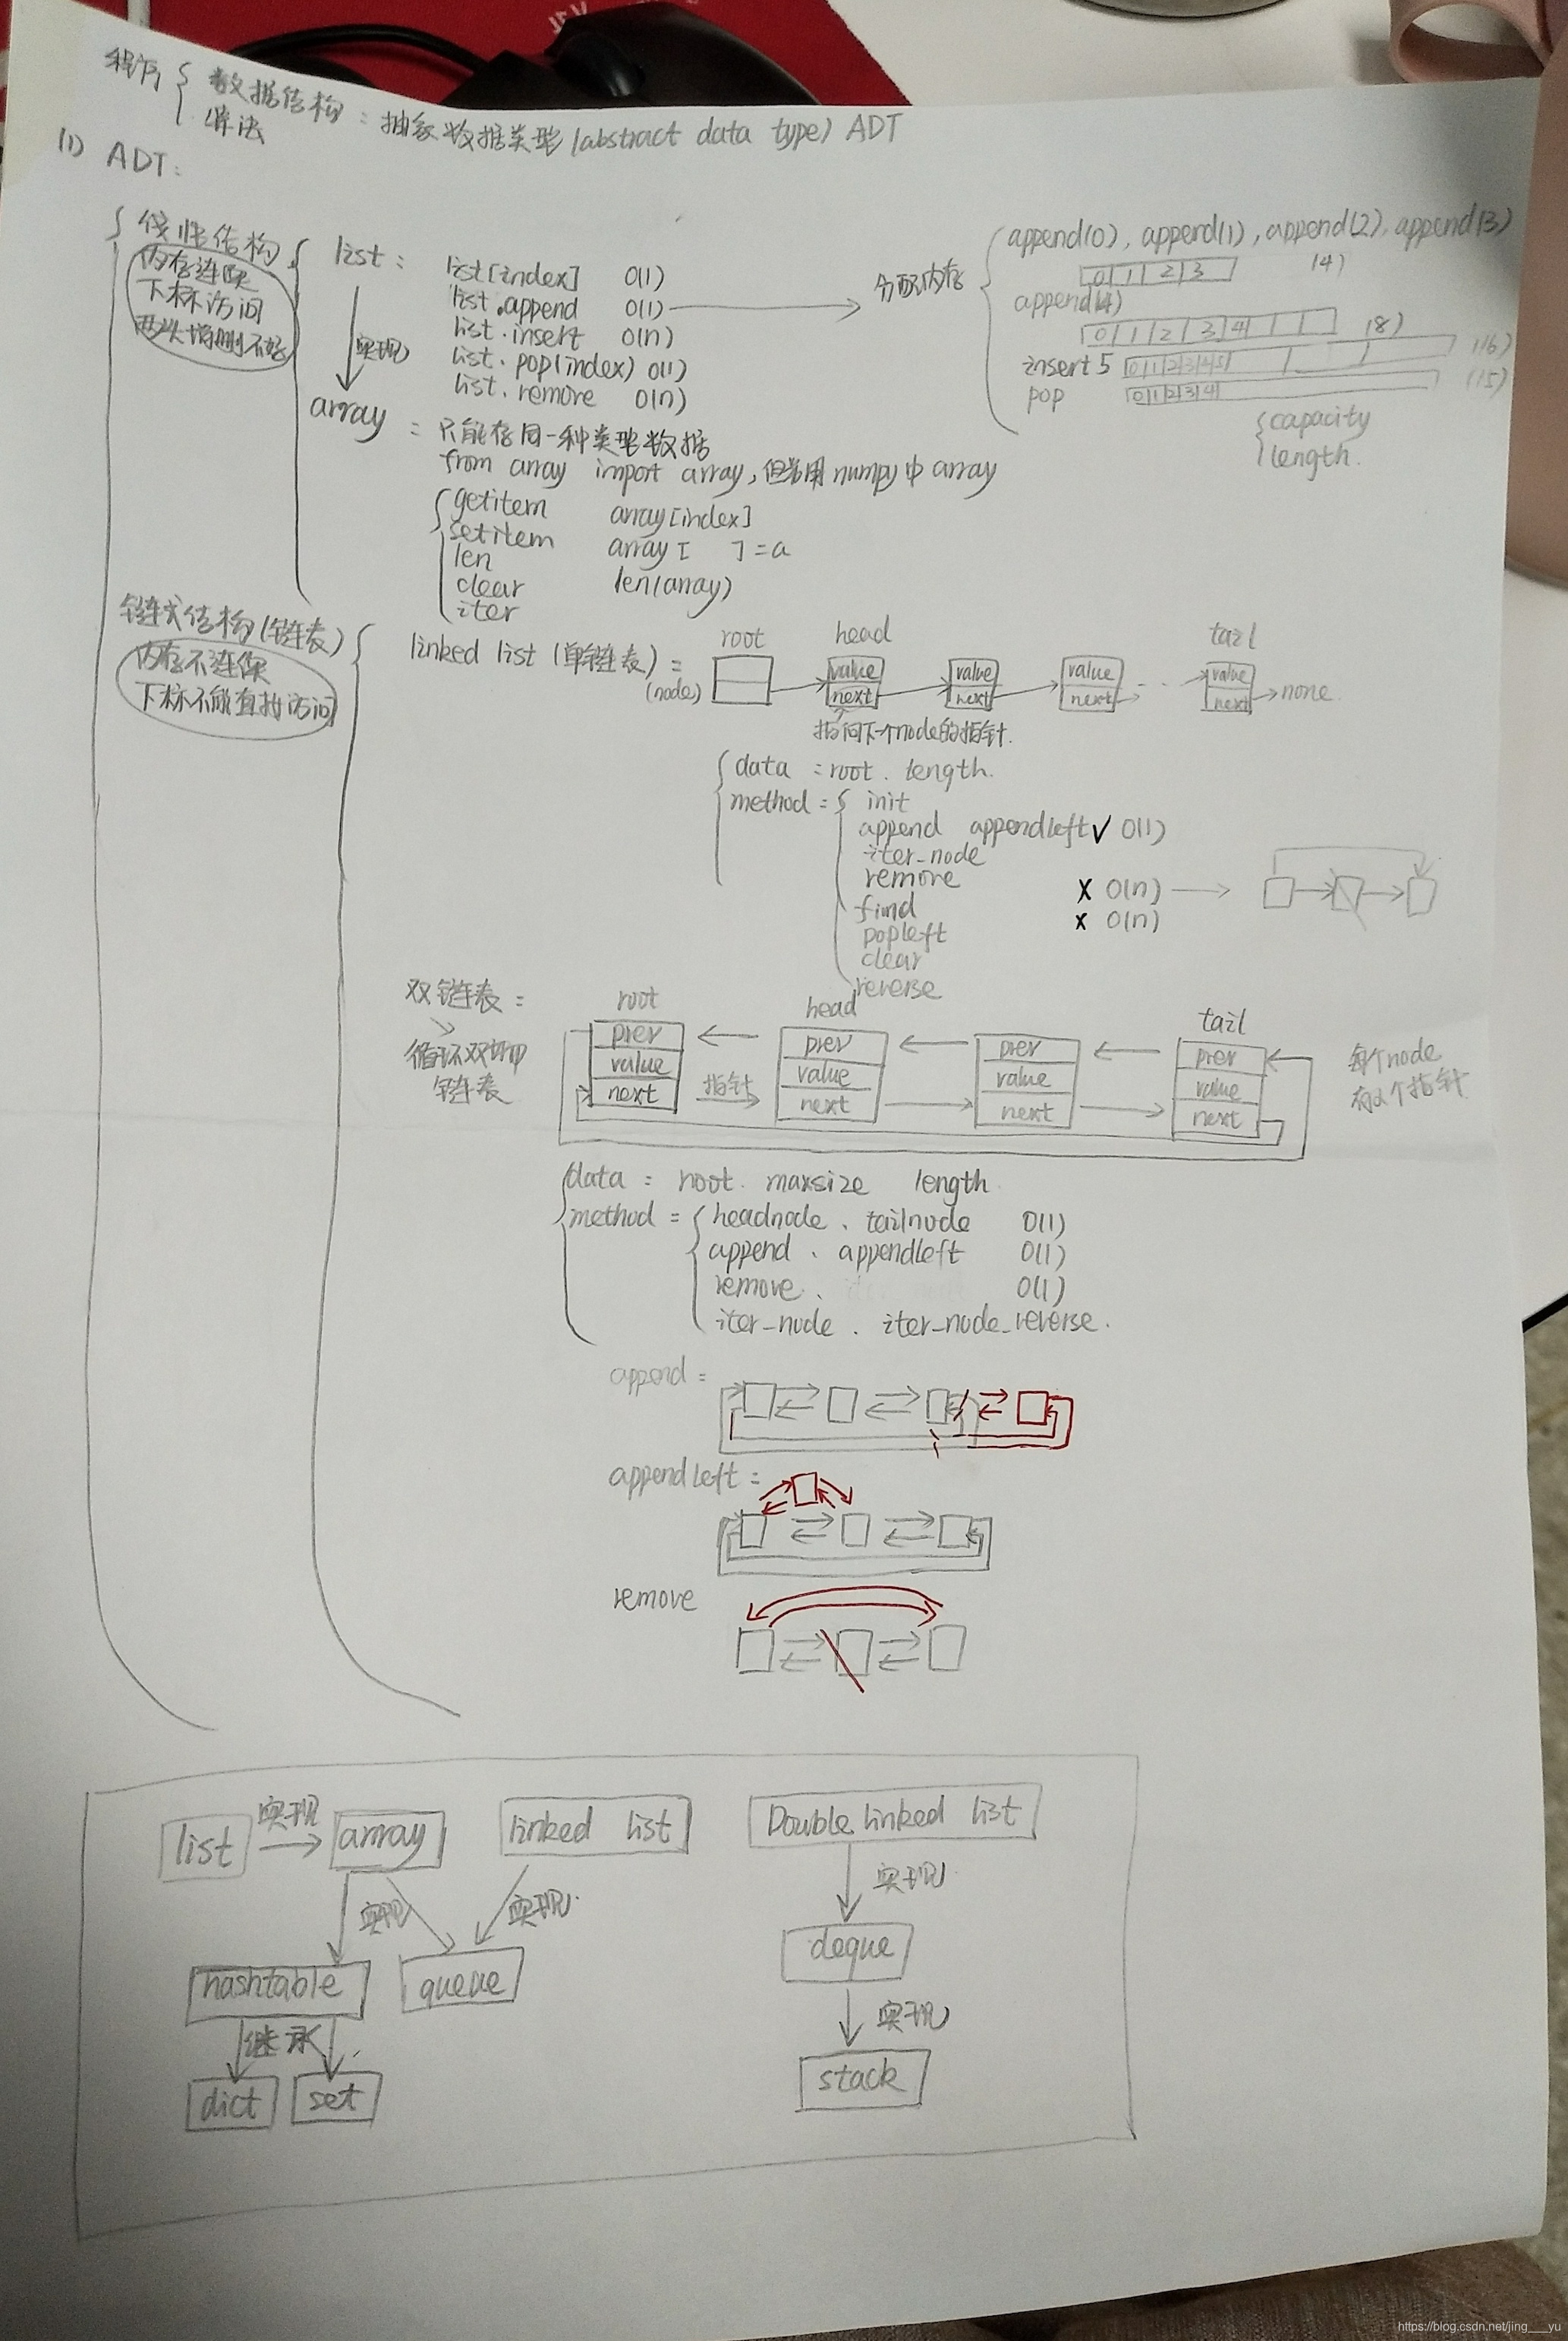 程序 { 数据结构：抽象数据类型 (abstract data type) ADT
算法
(1) ADT：
线性结构
内存连续
下标访问
list：
list[index] O(1)
list.append O(1)
list.insert O(n)
list.pop(index) O(1)
list.remove O(n)
实现
array：只能存同一种类型数据
from array import array, 但常用numpy中array
getitem array[index]
setitem array[ ]=a
len
clear len(array)
iter
分配内存
append(0), append(1), append(2), append(3)
0 1 2 3 (4)
append(4)
0 1 2 3 4 (8)
insert 5 0 1 2 3 4 5 (16)
pop 0 1 2 3 4 (15)
capacity
length.
链式结构(链表)
内存不连续
下标不能直接访问
linked list (单链表) =
(node)
root head tail
value value value value
next next next next none
指向下一个node的指针.
data = root. length.
method = init
append appendleft ✓ O(1)
iter_node
remove X O(n)
find x O(n)
popleft
clear
reverse
双链表：
循环双端
链表
root head tail
prev prev prev prev
value value value value
next 指针 next next next
每个node
有2个指针
data : root. maxsize length
method = headnode . tailnode O(1)
append . appendleft O(1)
remove . O(1)
iter_node . iter_node_reverse.
append =
appendleft =
remove
list 实现 array linked list Double linked list
实现 实现 实现
hashtable queue deque
继承 实现
dict set stack
https://blog.csdn.net/jing___yu